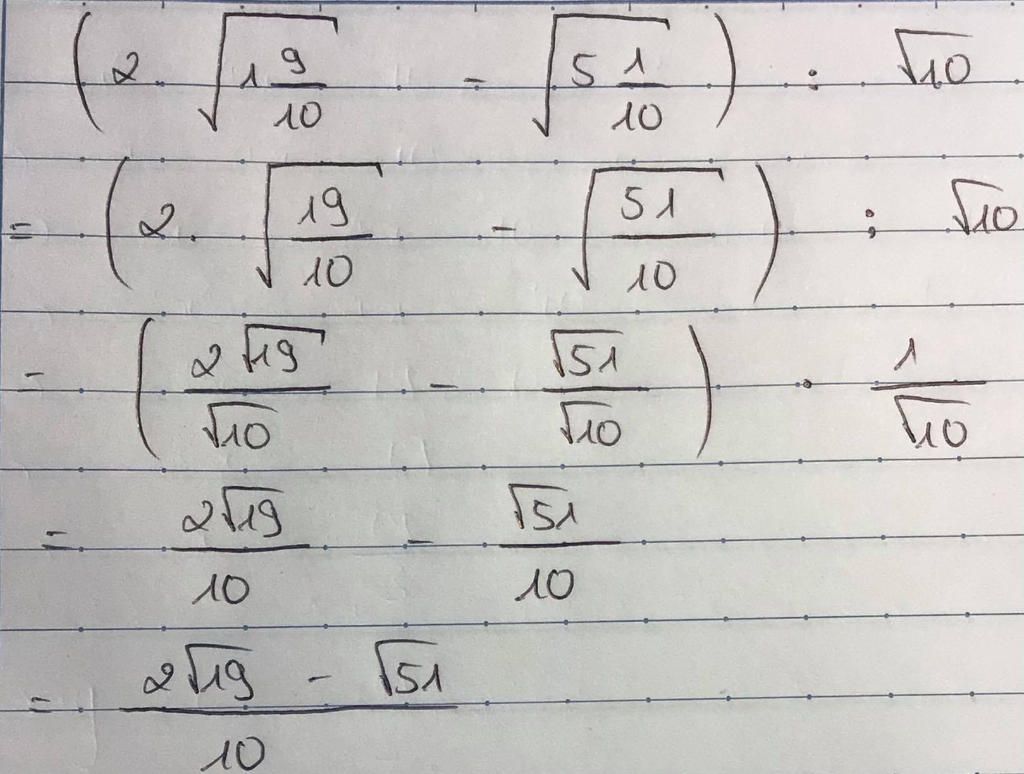 ( 2 √(1 9/10) - √(5 1/10) ) : √10
= ( 2 . √(19/10) - √(51/10) ) : √10
= ( 2√19/√10 - √51/√10 ) · 1/√10
= 2√19/10 - √51/10
= (2√19 - √51)/10